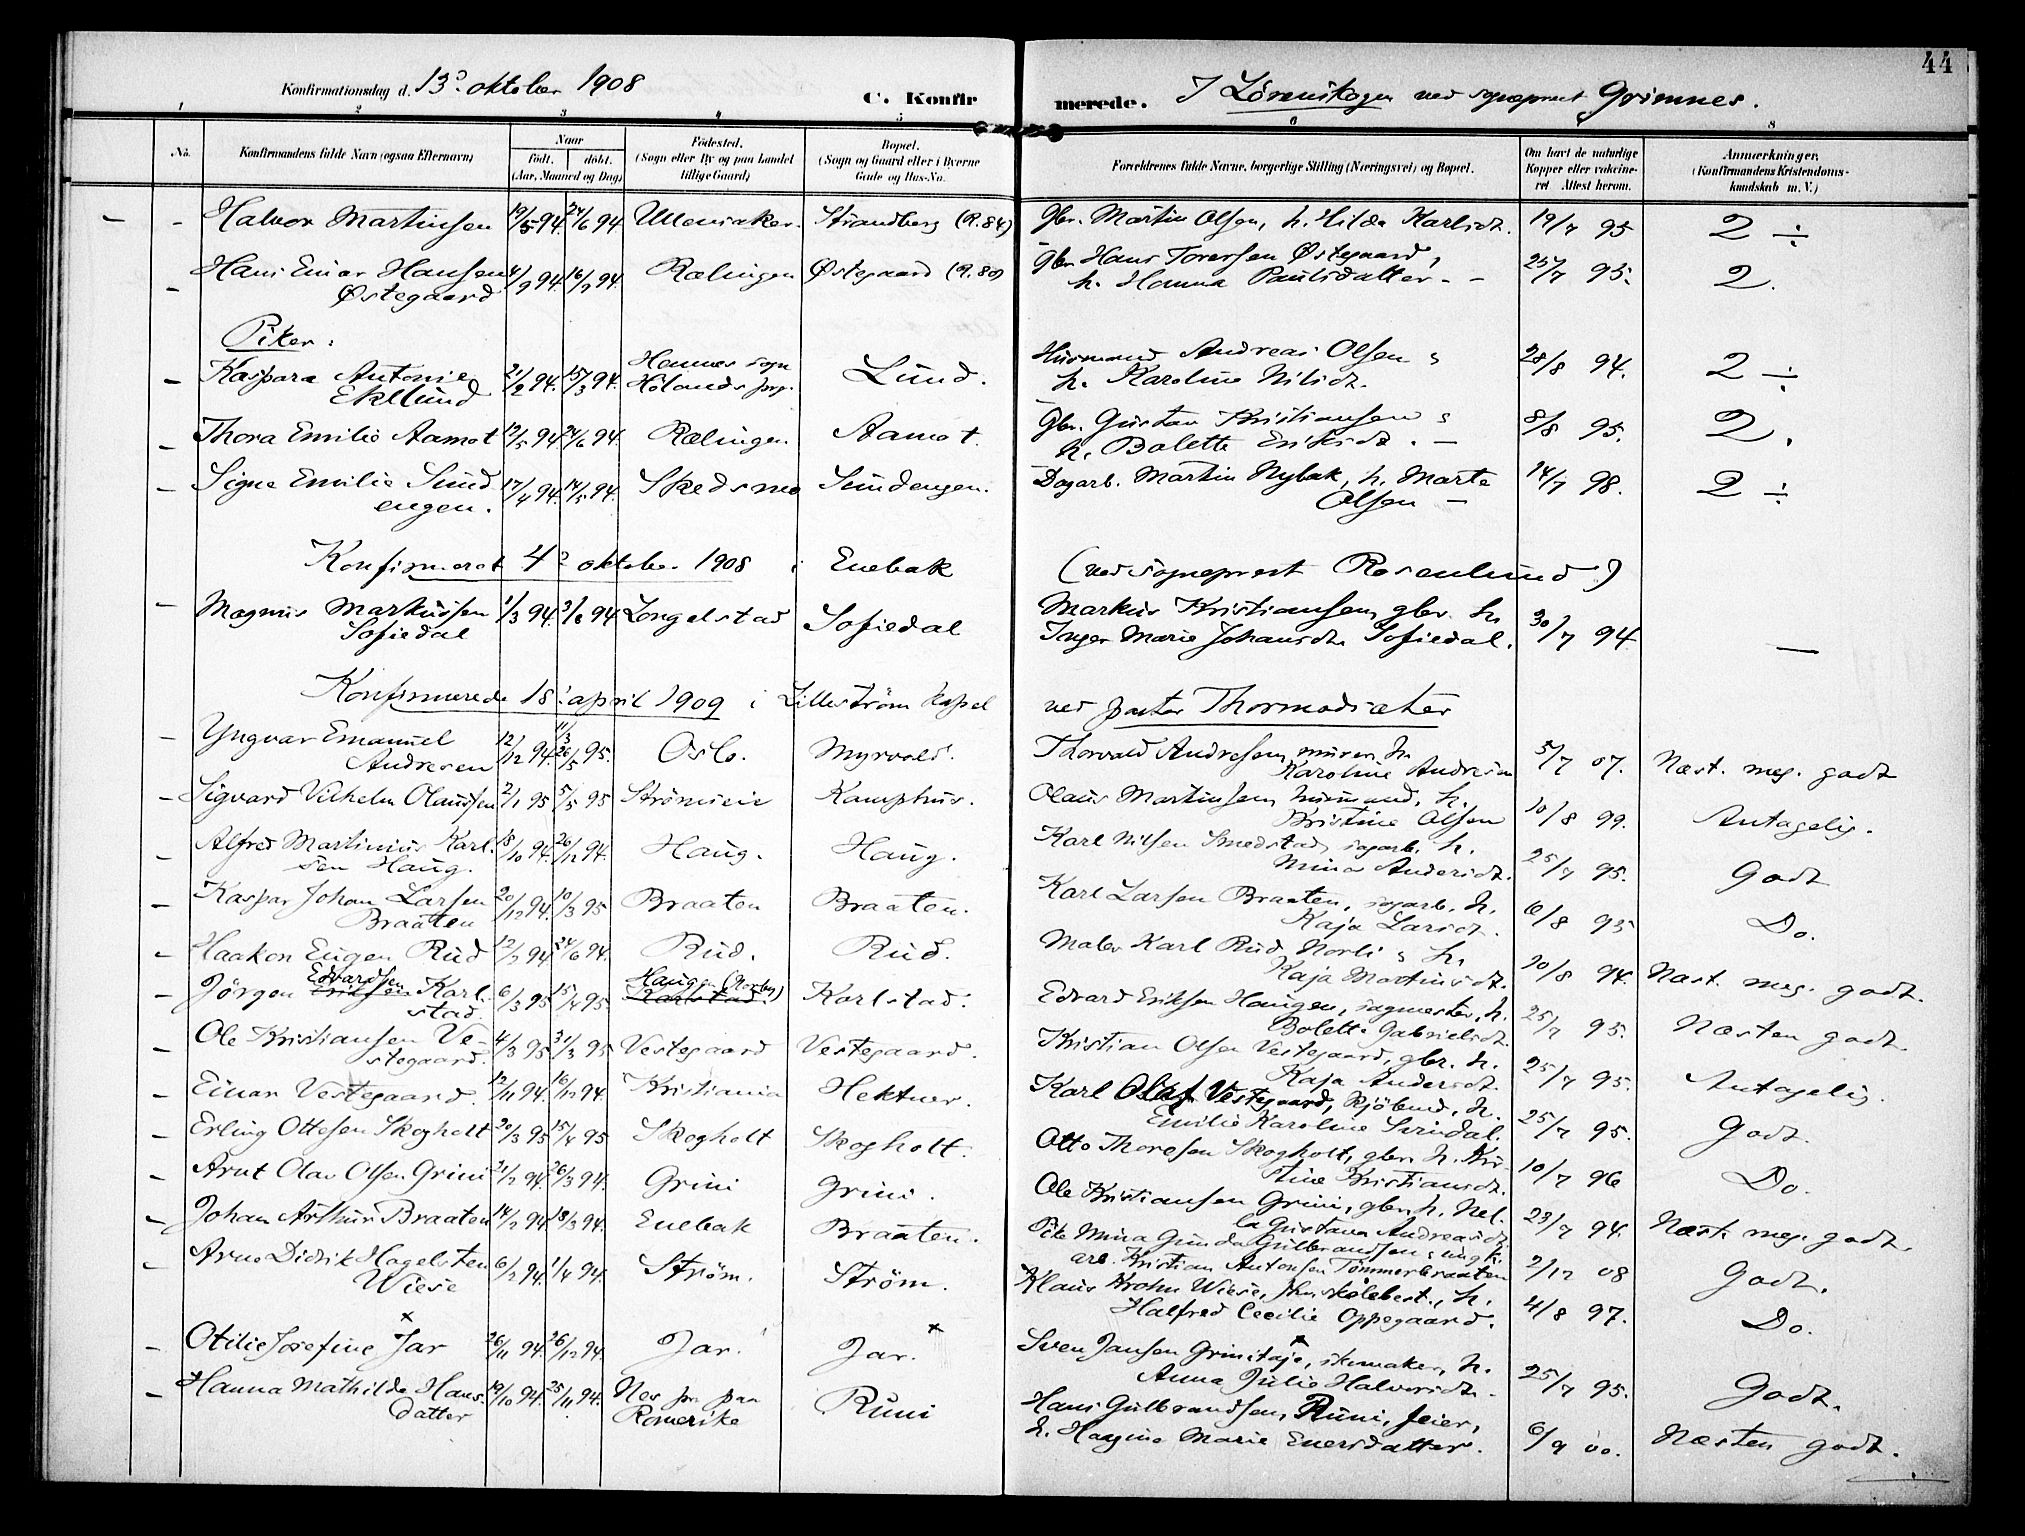 44
Konfirmationsdag d. 13de oktober 1908
C. Konfirmerede. I Lörenskogen ved sogneprest Grimnes.
1 2 3 4 5 6 7 8
No. Konfirmandens fulde Navn (ogsaa Efternavn) Naar födt. döbt. (Aar, Maaned og Dag) Födested. (Sogn eller By og paa Landet tillige Gaard) Bopæl. (Sogn og Gaard eller i Byerne Gade og Hus-No. Forældrenes fulde Navne, borgerlige Stilling (Næringsvei) og Bopæl. Om havt de naturlige Kopper eller vakcineret. Attest herom. Anmærkninger. (Konfirmandens Kristendomskundskab m. V.)
- - Halvor Martinsen 19/5 94. 24/6 94 Ullensaker. Strandberg (R. 84) Gbr. Martin Olsen, h. Hilda Karlsdt. 19/7 95 2 ÷
- Hans Einar Hansen Østegaard 4/9 94. 16/9 94. Rælingen Østegaard (R. 80) Gbr. Hans Toversen Østegaard, h. Hanna Paulsdatter - - 25/7 95. 2.
Piker:
- Kaspara Antonie Eklund 21/2 94. 15/3 94. Hemnes sogn Hölands prg. Lund. Husmand Andreas Olsen & h. Karoline Nilsdt. 28/8 94. 2 ÷
- Thora Emilie Aamot 12/5 94. 24/6 94. Rælingen. Aamot. Gbr. Gustav Kristiansen & h. Bolette Eriksdt. - 8/8 95. 2.
- Signe Emilie Sundengen. 17/4 94. 14/5 94. Skedsmo Sundengen. Dagarb. Martin Nybak, h. Marte Olsen - 14/7 98. 2 ÷
Konfirmeret 4de oktober 1908 i Enebak (ved sogneprest Rosenlund)
- Magnus Markussen Sofiedal 1/3 94. 3/6 94 Longelstad Sofiedal Markus Kristiansen gbr. h. Inger Marie Johansdt. Sofiedal. 30/7 94 -
Konfirmerede 18. april 1909 i Lilleström kapel ved pastor Thormodsæter
- Yngvar Emanuel Andresen 12/12 94. 11/3 26/5 95. Oslo. Myrvold. Thorvald Andresen, murer, h. Karoline Andresen 5/7 07. Næst. meg. godt
- Sigvard Vilhelm Olaussen 2/1 95 5/5 95 Strömsvie Kamphus. Olaus Martinsen, husmand, h. Kristine Olsen 10/8 99. Antagelig.
- Alfred Martinius Karlsen Haug. 18/10 94. 26/12 94. Haug. Haug. Karl Nilsen Smedstad, sagarb. h. Mina Andersdt. 25/7 95. Godt
- Kaspar Johan Larsen Braaten 20/12 94. 10/3 95 Braaten Braaten. Karl Larsen Braaten, sagarb. h. Kaja Larsdt. 6/8 95 Do.
- Haakon Eugen Rud 12/2 94 24/6 94. Rud. Rud. Maler Karl Rud Norli & h. Kaja Martinsdt. 20/8 94. Næst. meg. godt.
- Jörgen Edvardsen Karlstad. 6/3 95 15/4 95. Haugen (Nordby) Karlstad. Karlstad. Edvard Eriksen Haugen, sagmester, h. Bolette Gabrielsdt. 25/7 95. Næsten godt.
- Ole Kristiansen Vestegaard. 4/3 95 31/3 95 Vestegaard Vestegaard. Kristian Olsen Vestegaard, gbr. h. Kaja Andersdt. 25/7 95. Antagelig.
- Einar Vestegaard. 12/11 94. 16/12 94. Kristiania Hektner. Karl Olaf Vestegaard, kjöbmd, h. Emilie Karoline Svindal. 25/7 95. Godt.
- Erling Ottesen Skogholt 20/3 95 15/4 95 Skogholt Skogholt. Otto Thoresen Skogholt, gbr. h. Kristine Kristiansdt. 10/7 96 Do.
- Arnt Olav Olsen Grini 21/2 94. 26/3 94. Grini Grini. Ole Kristiansen Grini, gbr. h. Nella Gustava Andreasdt. 23/7 94. Næst. meg. godt.
- Johan Arthur Braaten 14/2 94 18/3 94. Enebak Braaten. Pike Mina Gunda Gulbrandsen & ungk. arb. Kristian Antonsen Tömmerbraaten 2/12 08 Godt.
- Arne Didrik Hagelsten Wiese 6/2 94. 1/4 94. Ström. Ström. Klaus Krohn Wiese, h. Halfred Cecilie Oppegaard. 4/8 97. Do.
- Otilie Josefine x Jar 26/11 94. 26/12 94. Jar. Jar. x Sven Jansen Grinitajo, x skomaker, h. Anna Julie Halvorsdt. 25/7 95. Godt.
- Hanna Mathilde Hansdatter 19/10 94. 25/11 94. Nes pr. paa Romerike Runi Hans Gulbrandsen, Runi, feier, h. Hagine Marie Enersdatter. 6/9 00. Næsten godt.